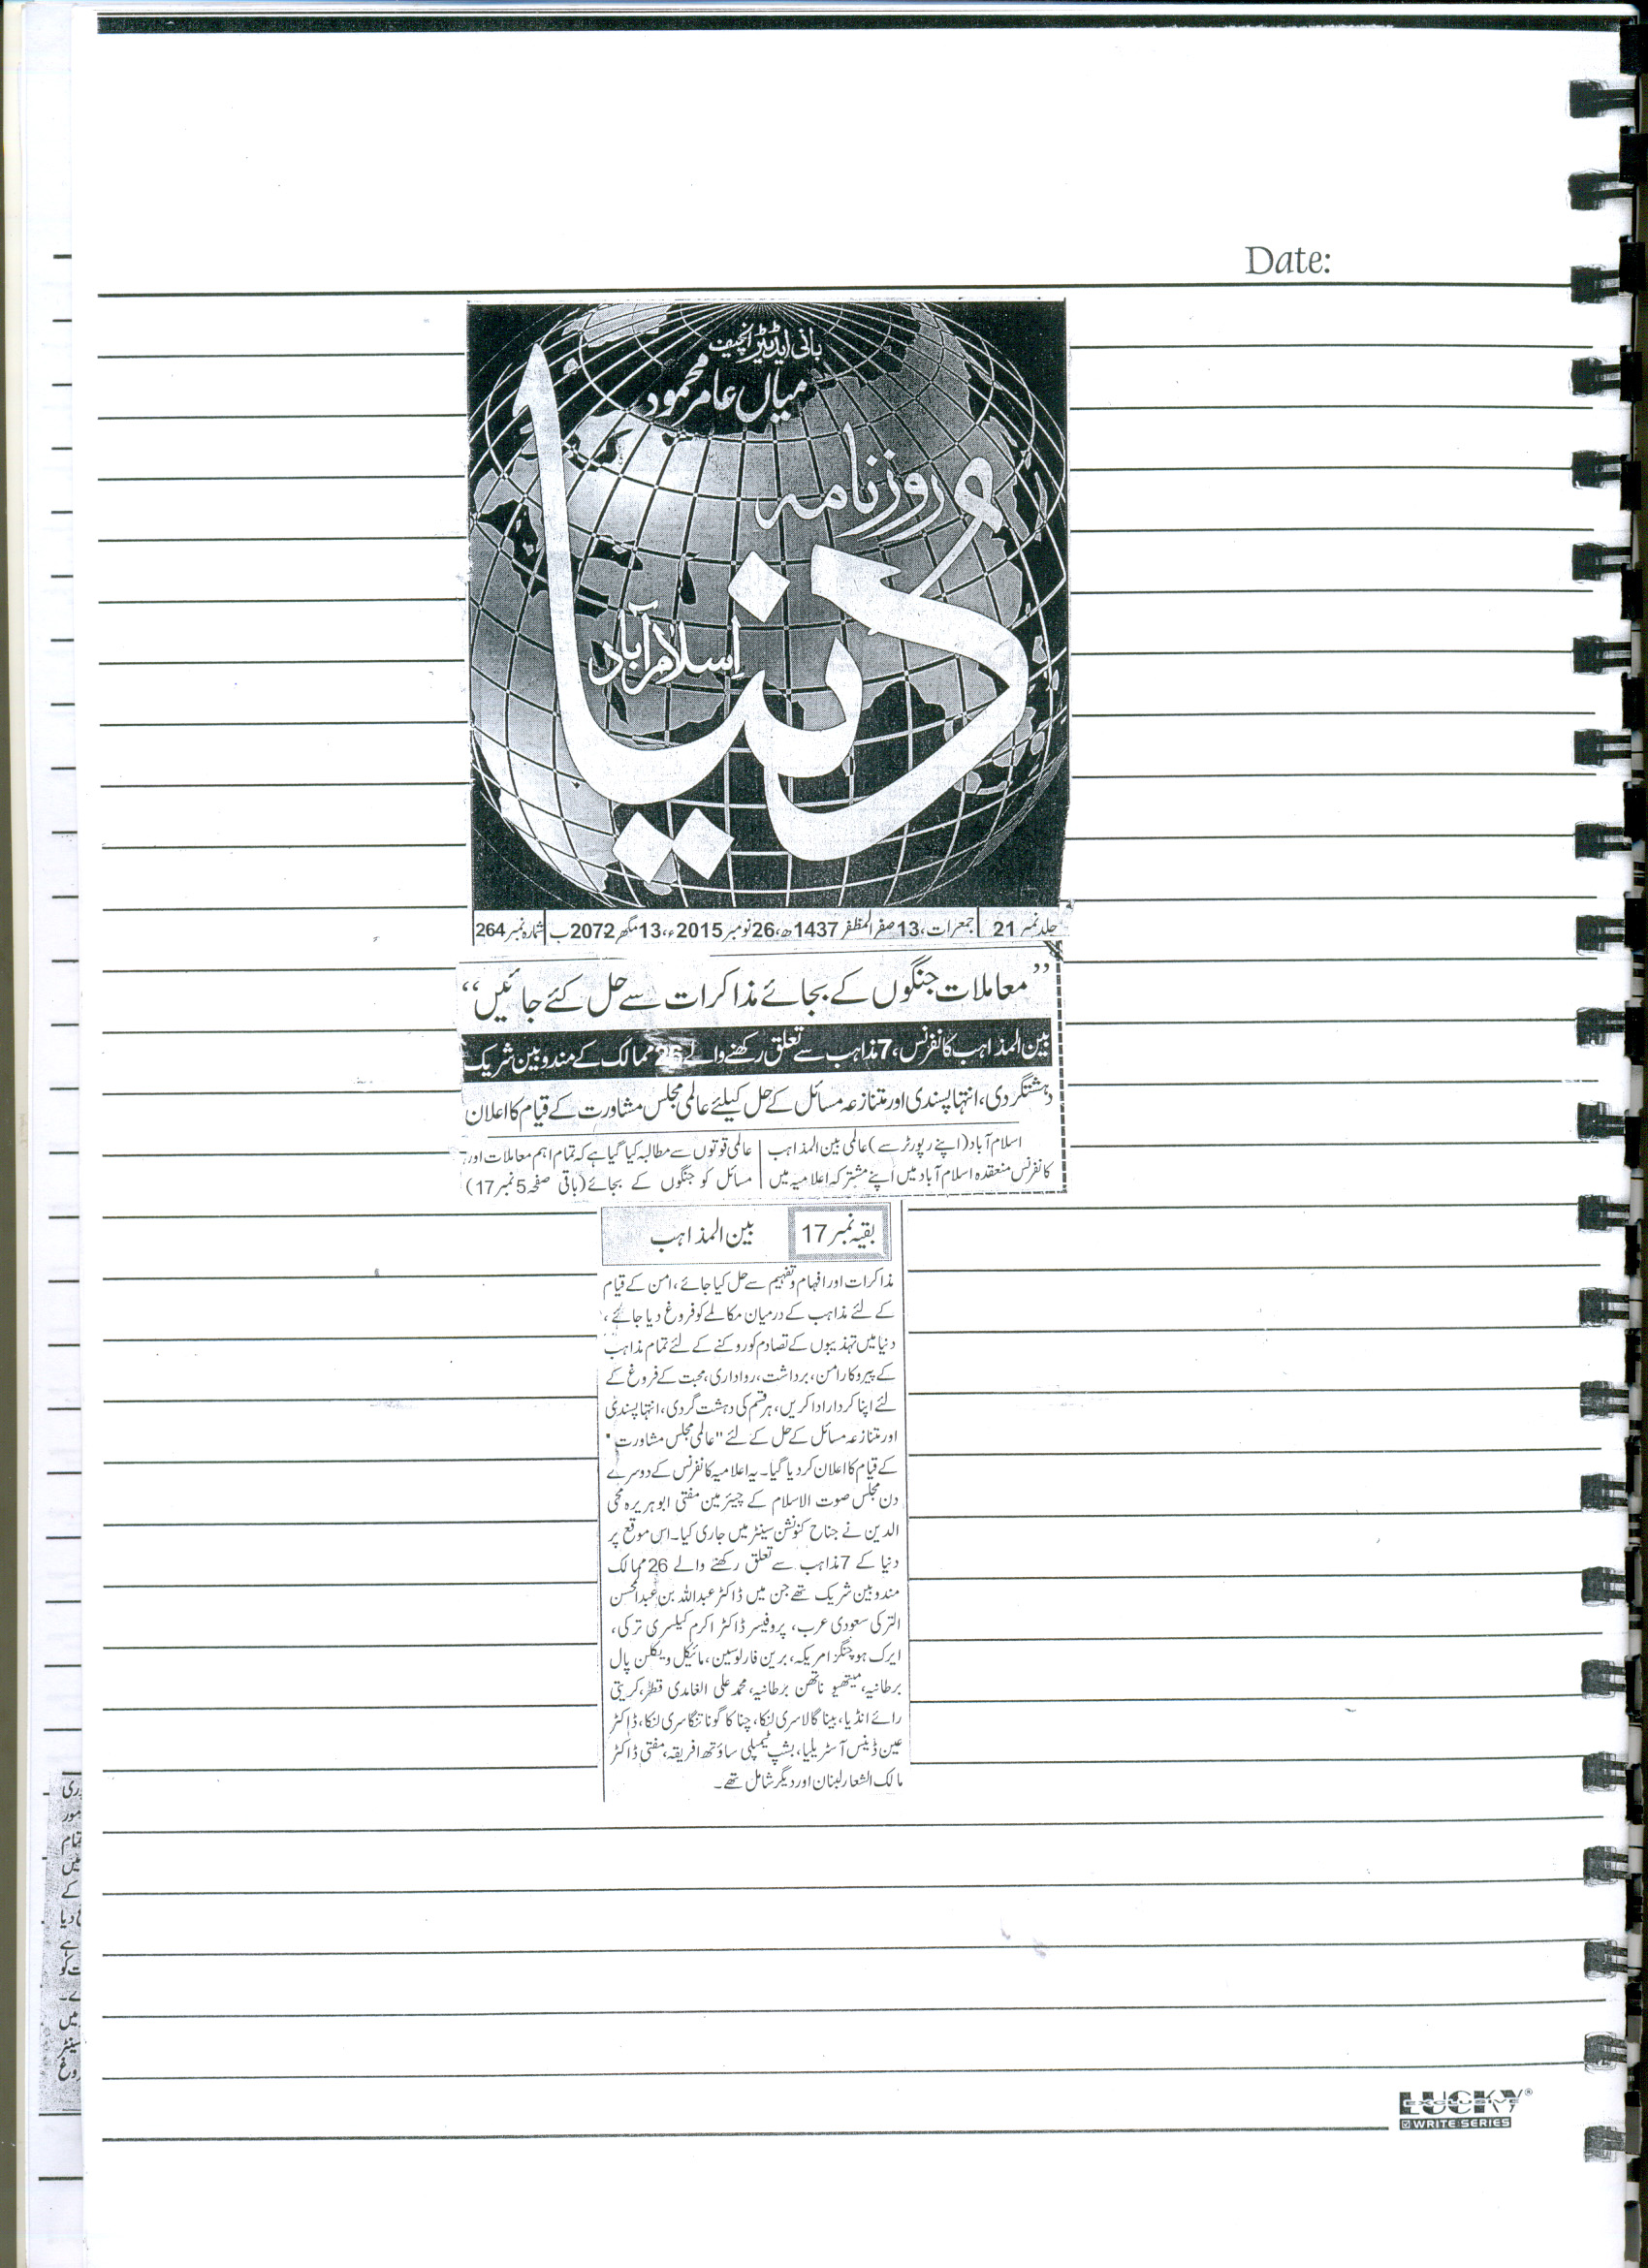 Date:
بانی ایڈیٹر انچیف
میاں عامر محمود
روزنامہ
دُنیا
اسلام آباد
جلد نمبر 21 | جمعرات، 13 صفر المظفر 1437ھ، 26 نومبر 2015ء، 13 مگھر 2072ب | شمارہ نمبر 264
”معاملات جنگوں کے بجائے مذاکرات سے حل کئے جائیں“
بین المذاہب کانفرنس، 7 مذاہب سے تعلق رکھنے والے 26 ممالک کے مندوبین شریک
دہشتگردی، انتہا پسندی اور متنازعہ مسائل کے حل کیلئے عالمی مجلس مشاورت کے قیام کا اعلان
اسلام آباد (اپنے رپورٹر سے) عالمی بین المذاہب
کانفرنس منعقدہ اسلام آباد میں اپنے مشترکہ اعلامیہ میں
عالمی قوتوں سے مطالبہ کیا گیا ہے کہ تمام اہم معاملات اور
مسائل کو جنگوں کے بجائے (باقی صفحہ 5 نمبر 17)
بقیہ نمبر 17 بین المذاہب
مذاکرات اور افہام و تفہیم سے حل کیا جائے، امن کے قیام
کے لئے مذاہب کے درمیان مکالمے کو فروغ دیا جائے،
دنیا میں تہذیبوں کے تصادم کو روکنے کے لئے تمام مذاہب
کے پیروکار امن، برداشت، رواداری، محبت کے فروغ کے
لئے اپنا کردار ادا کریں، ہر قسم کی دہشت گردی، انتہا پسندی
اور متنازعہ مسائل کے حل کے لئے "عالمی مجلس مشاورت"
کے قیام کا اعلان کر دیا گیا۔ یہ اعلامیہ کانفرنس کے دوسرے
دن مجلس صوت الاسلام کے چیئرمین مفتی ابوہریرہ محی
الدین نے جناح کنونشن سینٹر میں جاری کیا۔ اس موقع پر
دنیا کے 7 مذاہب سے تعلق رکھنے والے 26 ممالک
مندوبین شریک تھے جن میں ڈاکٹر عبداللہ بن عبدالمحسن
الترکی سعودی عرب، پروفیسر ڈاکٹر اکرم کیلسری ترکی،
ایرک ہوچنگز امریکہ، برین فارلوسین، مائیکل ویکلن پال
برطانیہ، میتھیو ناتھن برطانیہ، محمد علی الغامدی قطر، کریتی
رائے انڈیا، بینا گالا سری لنکا، چناکا گونا تنگا سری لنکا، ڈاکٹر
عین ڈینس آسٹریلیا، بشپ ٹیمپلی ساؤتھ افریقہ، مفتی ڈاکٹر
مالک الشعار لبنان اور دیگر شامل تھے۔
LUCKY
EXCLUSIVE
WRITE SERIES